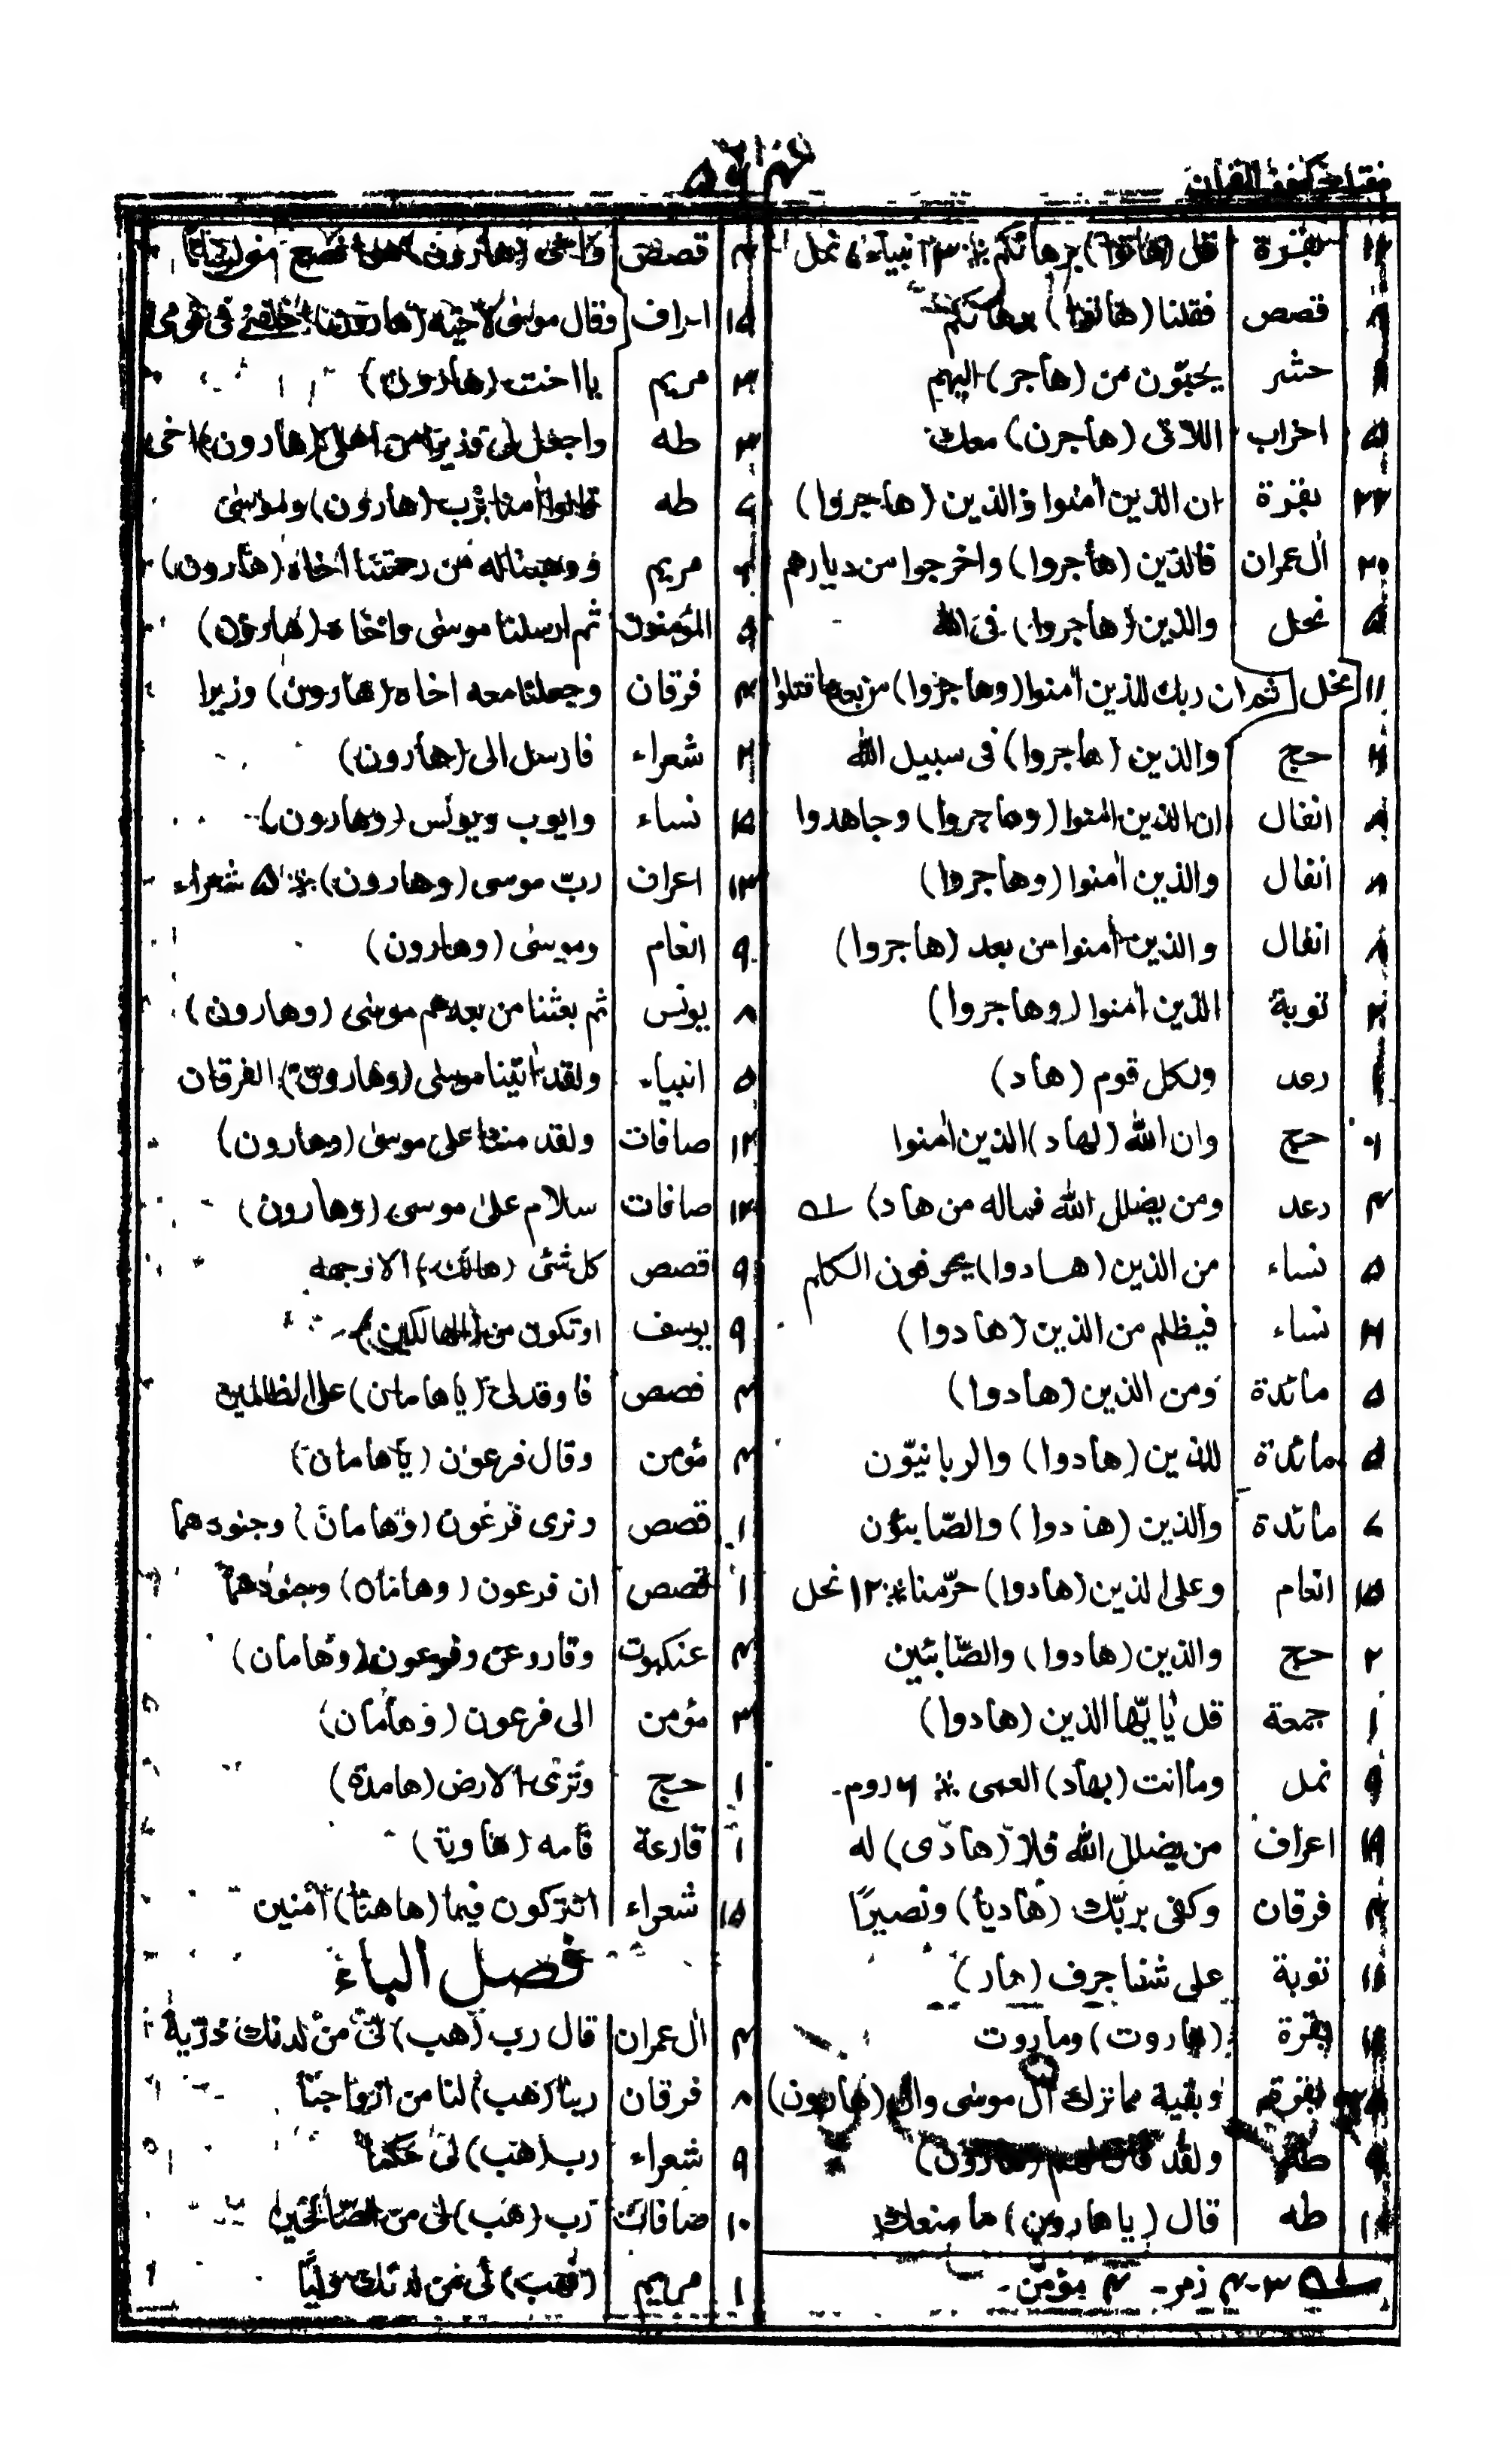 مفتاح كنوز القرآن
١٣ بقرة قل (هاتوا) برهانكم ٪ ٢ انبياء ٪ نمل
قصص فقلنا (هاتوا) برهانكم
١ حشر يحبّون من (هاجر) اليهم
٥ احزاب اللاتى (هاجرن) معك
٢٧ بقرة ان الذين اٰمنوا والذين (هاجروا)
٢٠ اٰل عمران فالذين (هاجروا) واخرجوا من ديارهم
٥ نحل والذين (هاجروا) فى الله
١١ نحل ثم ان ربك للذين اٰمنوا (وهاجروا) من بعد ما قتلوا
حج والذين (هاجروا) فى سبيل الله
٨ انفال ان الذين اٰمنوا (وهاجروا) وجاهدوا
٨ انفال والذين اٰمنوا (وهاجروا)
٨ انفال والذين اٰمنوا من بعد (هاجروا)
توبة الذين اٰمنوا (وهاجروا)
رعد ولكل قوم (هاد)
حج وان الله (لهاد) الذين اٰمنوا
٣ رعد ومن يضلل الله فماله من هاد)
٥ نساء من الذين (هادوا) يحرفون الكلم
نساء فبظلم من الذين (هادوا)
٥ مائدة ومن الذين (هادوا)
٥ مائدة للذين (هادوا) والربانيّون
٧ مائدة والذين (هادوا) والصّابئون
١٥ انعام وعلى الذين (هادوا) حرّمنا ٪ ١٢ نحل
٢ حج والذين (هادوا) والصّابئين
١ جمعة قل يٰايّها الذين (هادوا)
نمل وما انت (بهاد) العمى ٪ ٦ روم -
اعراف من يضلل الله فلا (هادى) له
فرقان وكفى بربّك (هاديا) ونصيرًا
توبة على شفا جرف (هار)
بقرة (هاروت) وماروت
بقرة وبقية مما ترك اٰل موسى واٰل (هارون)
طه ولقد قال لهم (هارون)
طه قال (يا هارون) ما منعك
٣-٤ زمر - ٤ مؤمن -
قصص واخى (هارون) هو افصح منى لسانا
١٥ اعراف وقال موسى لاخيه (هارون) اخلفنى فى قومى
مريم يا اخت (هارون)
طه واجعل لى وزيرا من اهلى (هارون) اخى
طه قالوا اٰمنا برب (هارون) وموسى
مريم ووهبنا له من رحمتنا اخاه (هارون)
المؤمنون ثم ارسلنا موسى واخاه (هارون)
فرقان وجعلنا معه اخاه (هارون) وزيرا
٢ شعراء فارسل الى (هارون)
نساء وايوب ويونس (وهارون)
١٣ اعراف ربّ موسى (وهارون) ٪ ٥ شعراء
٩ انعام وموسى (وهارون)
٨ يونس ثم بعثنا من بعدهم موسى (وهارون)
٥ انبياء ولقد اٰتينا موسى (وهارون) الفرقان
صافات ولقد مننا على موسى (وهارون)
صافات سلام على موسى (وهارون)
٩ قصص كل شئى (هالك) الا وجهه
٩ يوسف او تكون من (الهالكين)
٤ قصص فاوقد لى (يا هامان) على الطين
٤ مؤمن وقال فرعون (يا هامان)
١ قصص ونرى فرعون (وهامان) وجنودهما
١ قصص ان فرعون (وهامان) وجنودهما
٤ عنكبوت وقارون وفرعون (وهامان)
٣ مؤمن الى فرعون (وهامان)
١ حج وترى الارض (هامدة)
١ قارعة فامه (هاوية)
١٥ شعراء اتتركون فيما (هاهنا) اٰمنين
فصل الباء
٤ اٰل عمران قال رب (هب) لى من لدنك ذرّية
٨ فرقان ربنا (هب) لنا من ازواجنا
٩ شعراء رب (هب) لى حكما
١٠ صافات رب (هب) لى من الصّالحين
١ مريم (فهب) لى من لدنك وليًّا